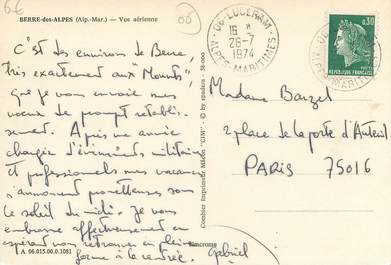 6€
BERRE-des-ALPES (Alp.-Mar.) — Vue aérienne
06
06 - LUCERAM
16 H
26-7
1974
ALPES MARITIMES
0,30
REPUBLIQUE FRANCAISE
C'est des environs de Berre,
très exactement aux "Mounts"
que je vous envoie mes
vœux de prompt rétablis-
sement. Après une année
chargée d'événements militaires
et professionnels mes vacances
s'annoncent paresseuses sous
le soleil du midi. Je vous
embrasse affectueusement en
espérant vous retrouver en pleine
forme à la rentrée.
Gabriel
Combier Imprimeur Mâcon "CIM" - © by spadem - 58-000
Madame Barzel
2 place de la porte d'Auteuil
PARIS 75016
A 06.015.00.0.1081